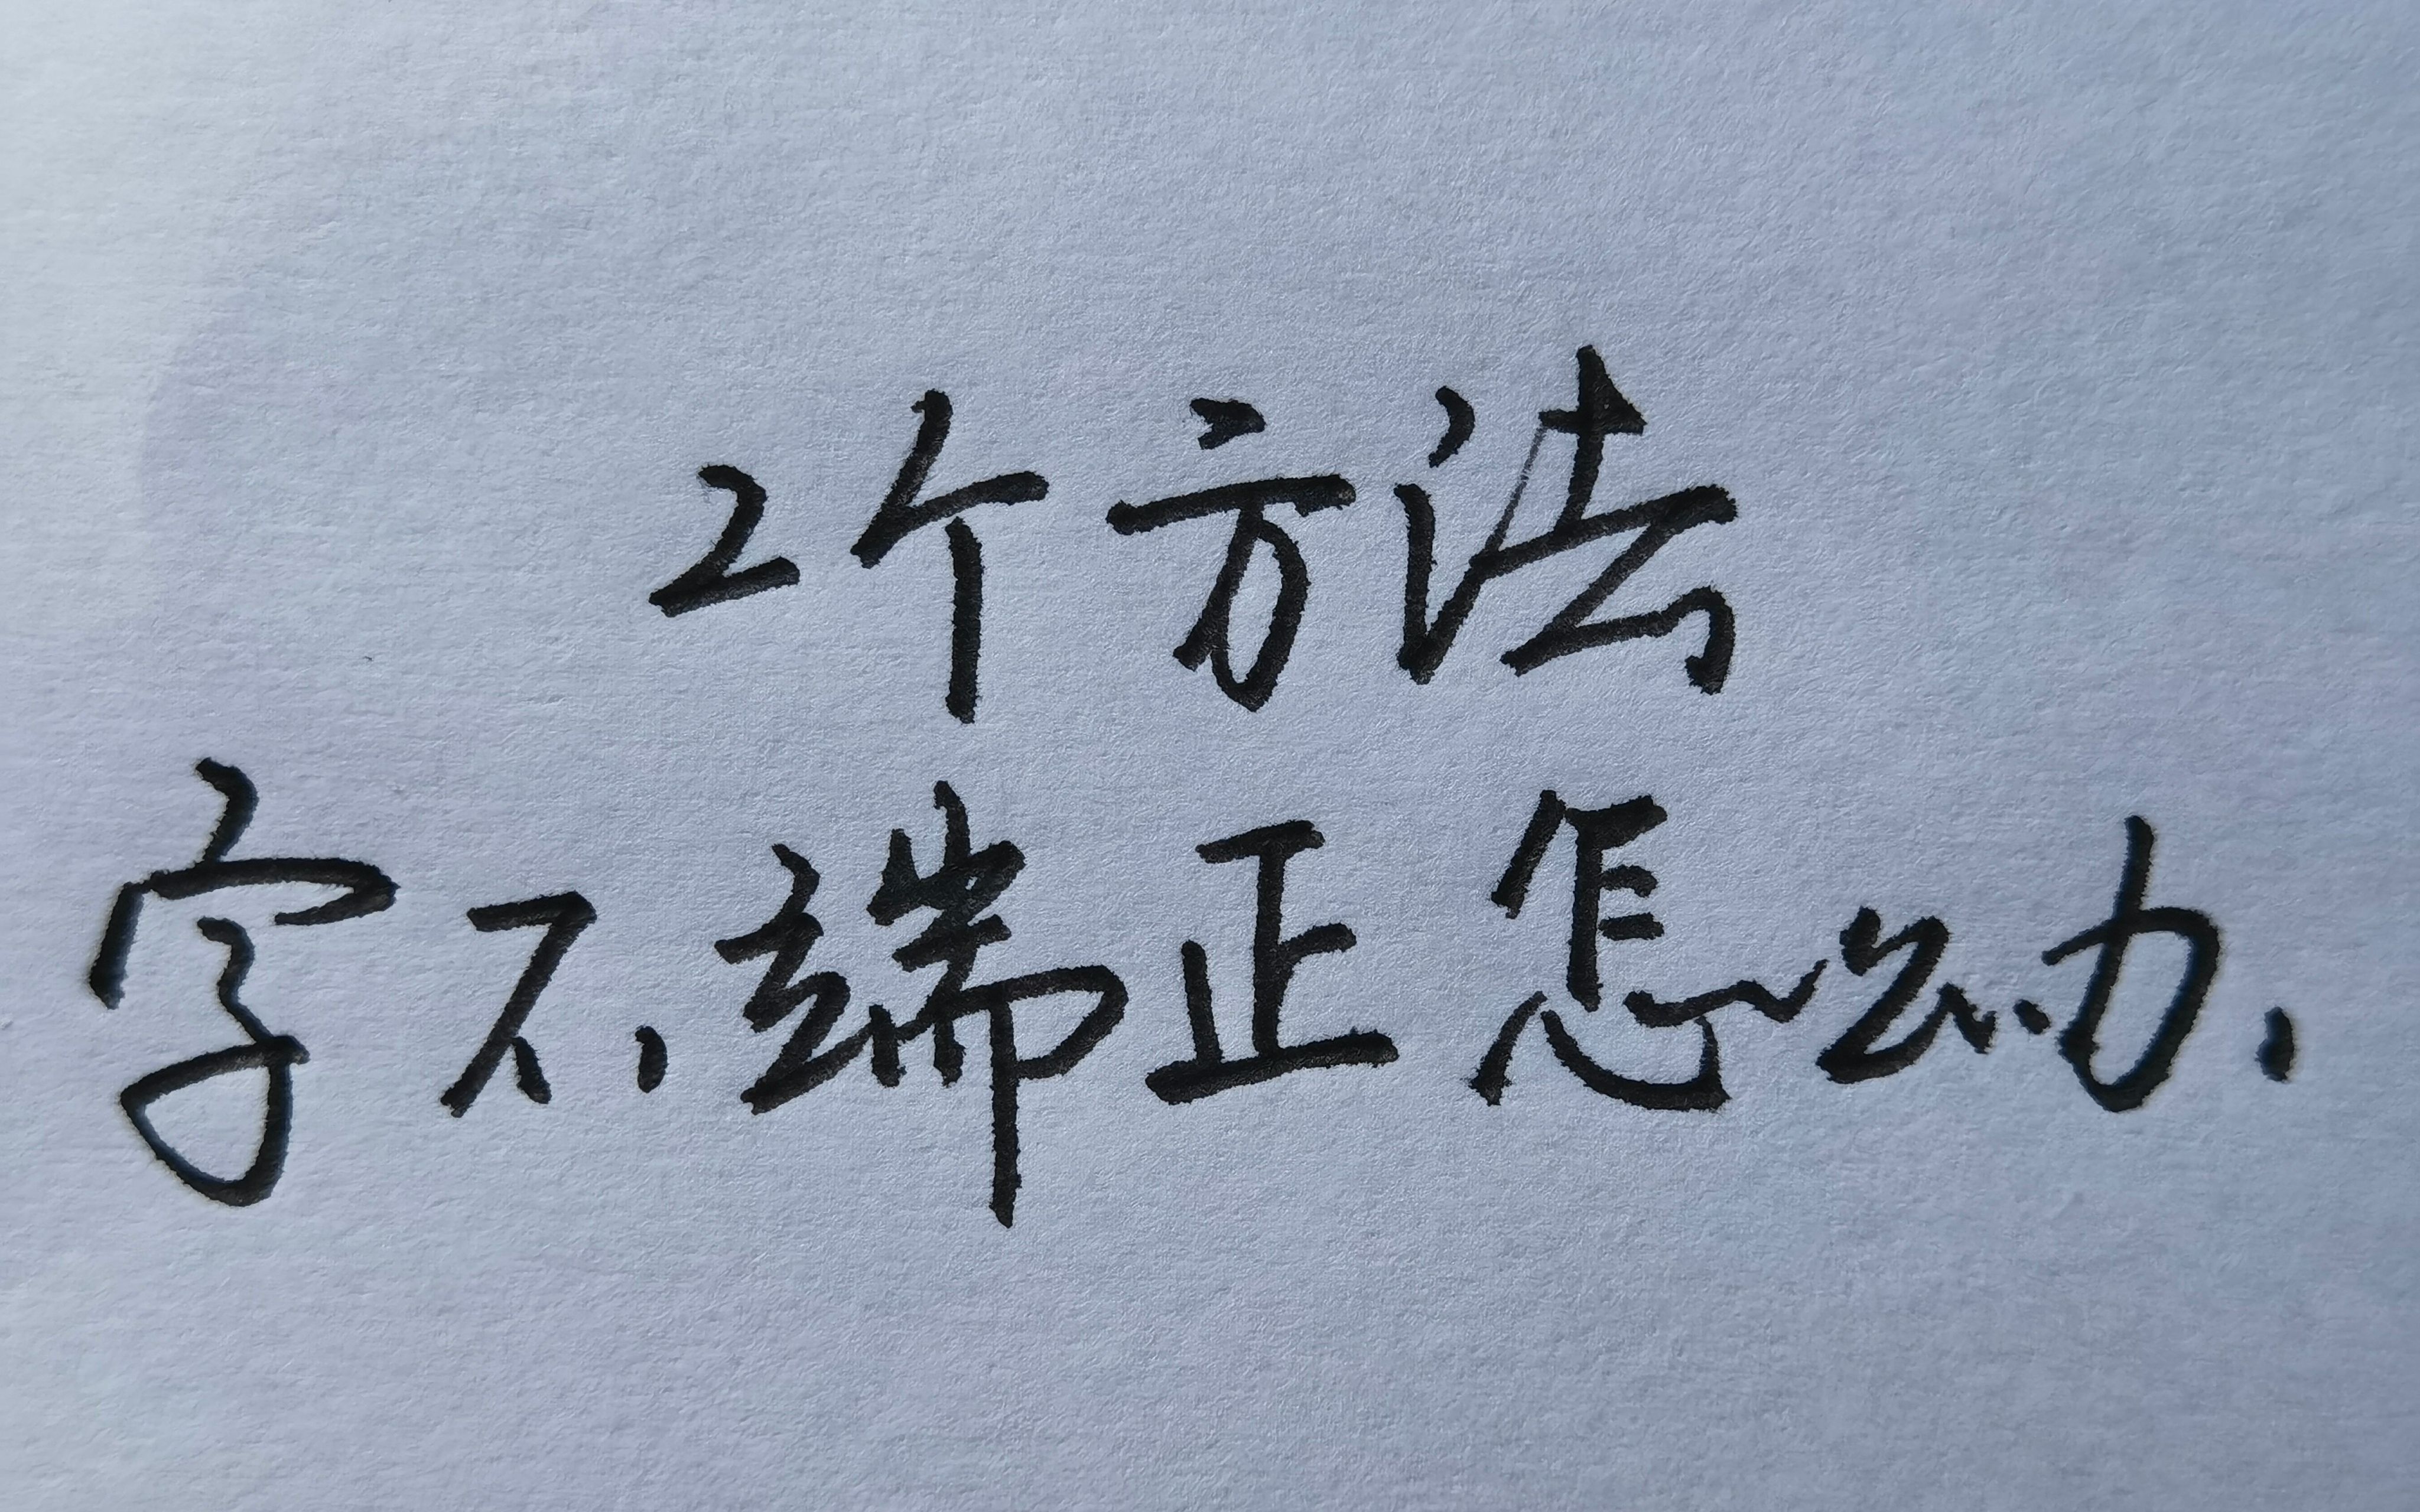 2个方法
字不端正怎么办